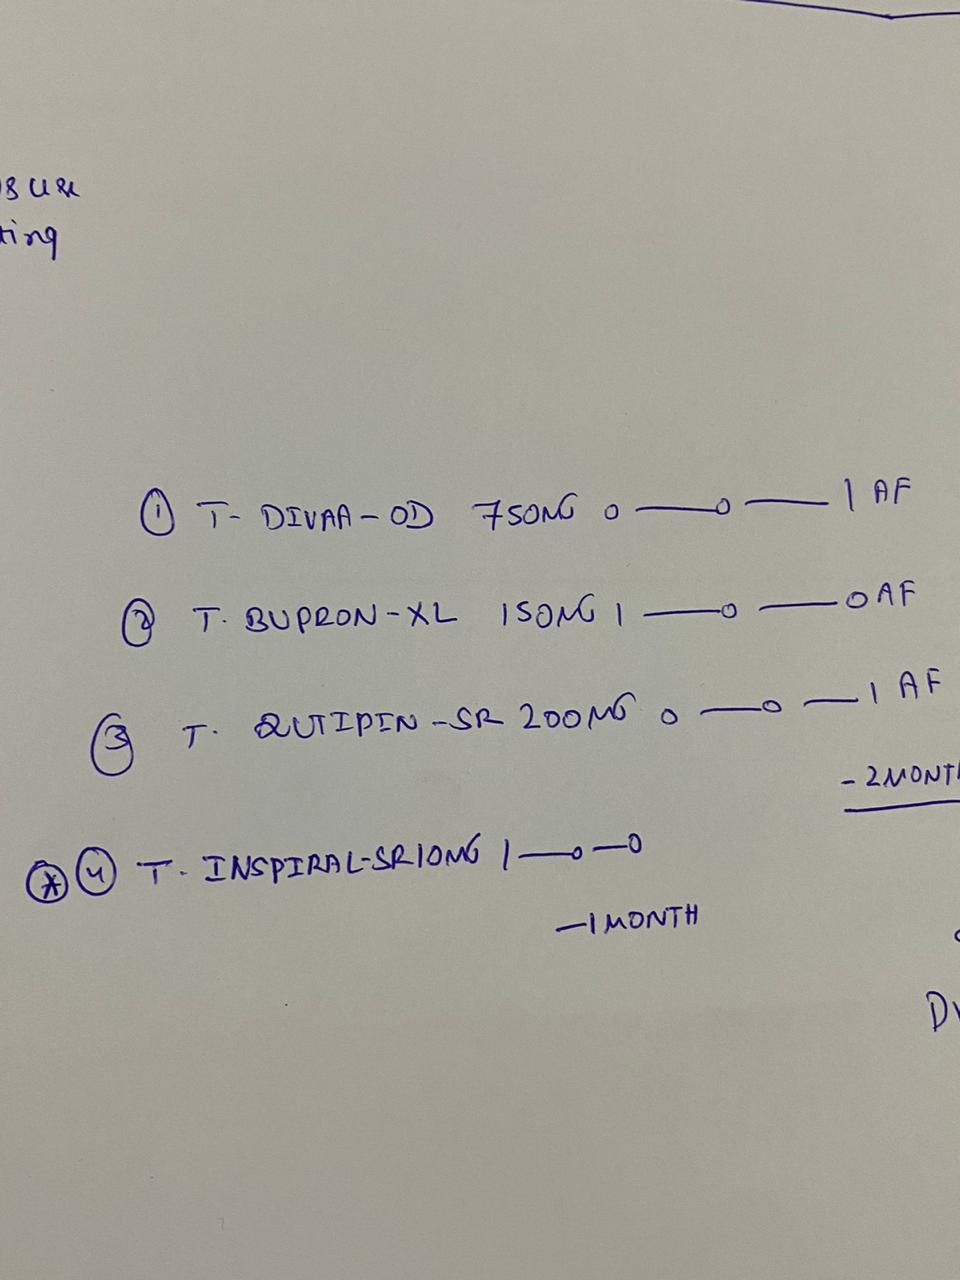 use
ting
① T- DIVAA-OD 750MG 0 — 0 — 1 AF
② T. BUPRON-XL 150MG 1 — 0 — 0 AF
③ T. QUTIPIN-SR 200MG 0 — 0 — 1 AF
- 2 MONTH
④ T. INSPIRAL-SR10MG 1 — 0 — 0
- 1 MONTH